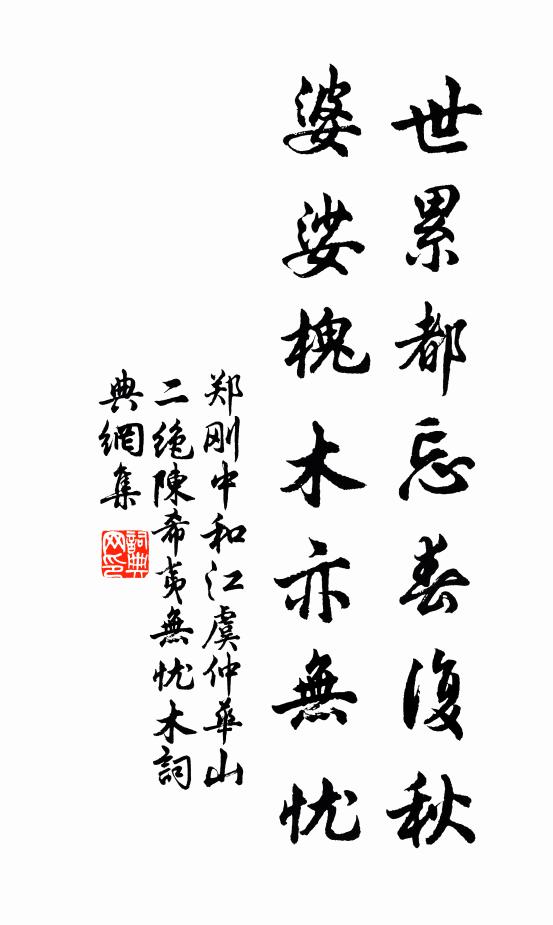 世累都忘春復秋
婆娑槐木亦無忧
郑刚中和江虞仲華山
二绝陳希夷無忧木詞
典網集
詞典
网印